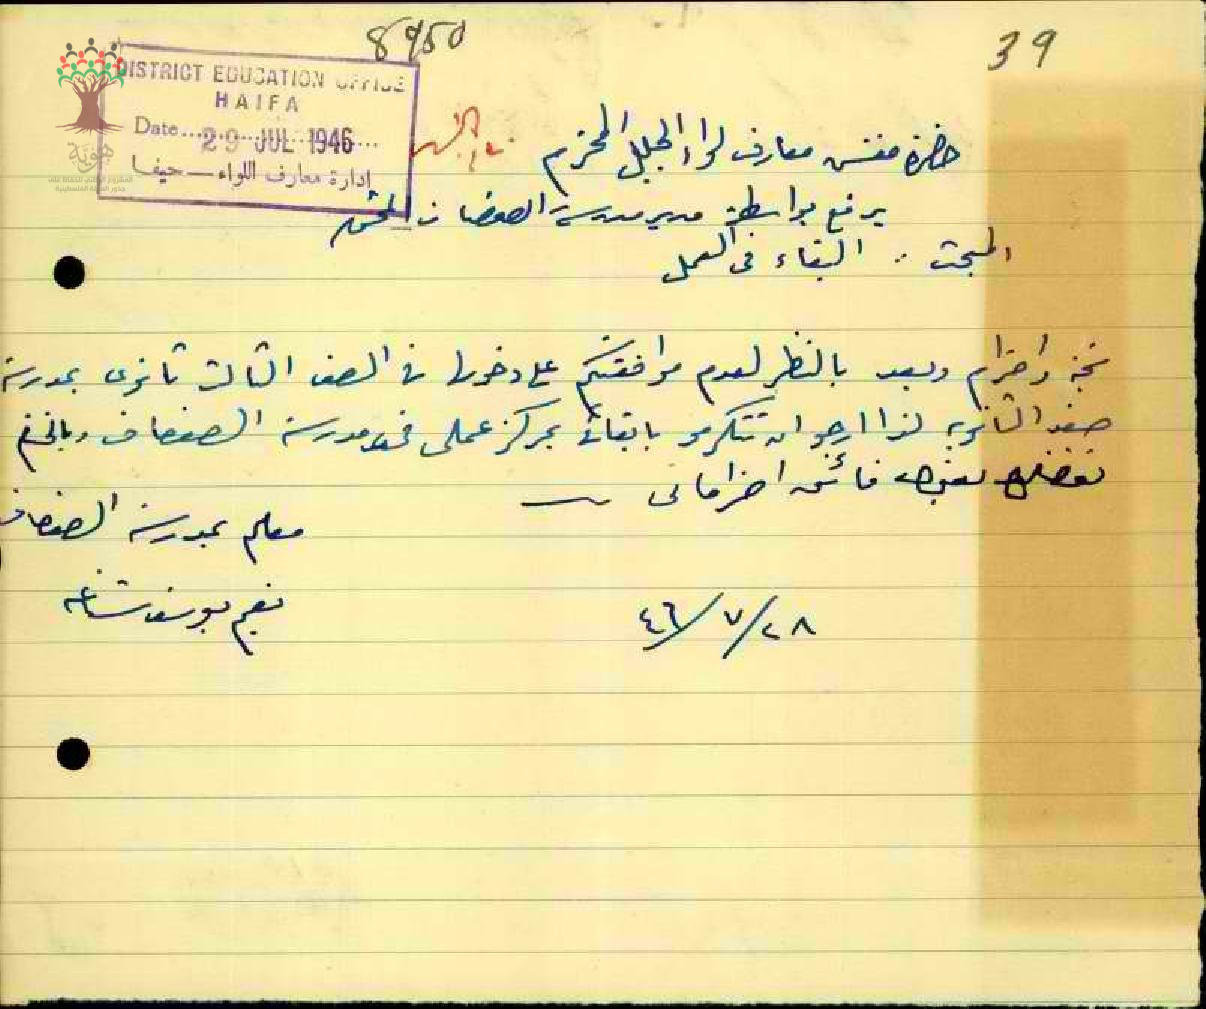 8950
39
DISTRICT EDUCATION OFFICE
HAIFA
Date 29 JUL 1946
إدارة معارف اللواء - حيفا
هوية
حضرة مفتش معارف لواء الجليل المحترم
يرفع بواسطة مدير مدرسة الصفصاف المحترم
المبحث : البقاء في العمل
تحية واحترام وبعد بالنظر لعدم موافقتكم على دخولنا في الصف الثالث ثانوي بمدرسة
صفد الثانوية لذا ارجو ان تتكرمو بابقائي بمركز عملي في مدرسة الصفصاف وبالختام
تفضلو بقبول فائق احتراماتي
معلم بمدرسة الصفصاف
نعيم يوسف
٢٨/٧/٤٦